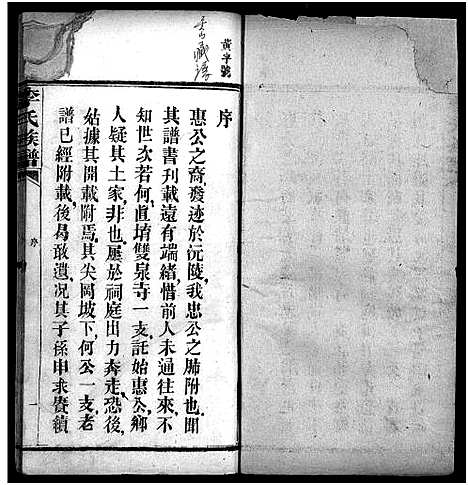 黃字號
序
惠公之裔發迹於沅陵我忠公之肺附也閱
其譜書刊載遠有端緒惜前人未通往來不
知世次若何眞堉雙泉寺一支託始惠公鄉
人疑其土家非也屢於祠庭出力奔走恐後
姑據其開載附焉其尖岡坡下何公一支老
譜已經附載後曷敢遺况其子孫申求賡續
李氏族譜
序
一